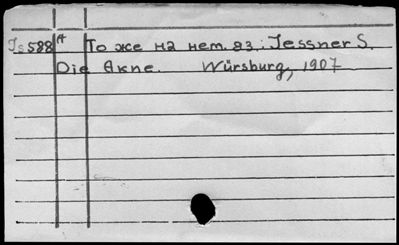 Js 588 A То же на нем. яз.: Jessner S.
Die Akne. Würsburg, 1907